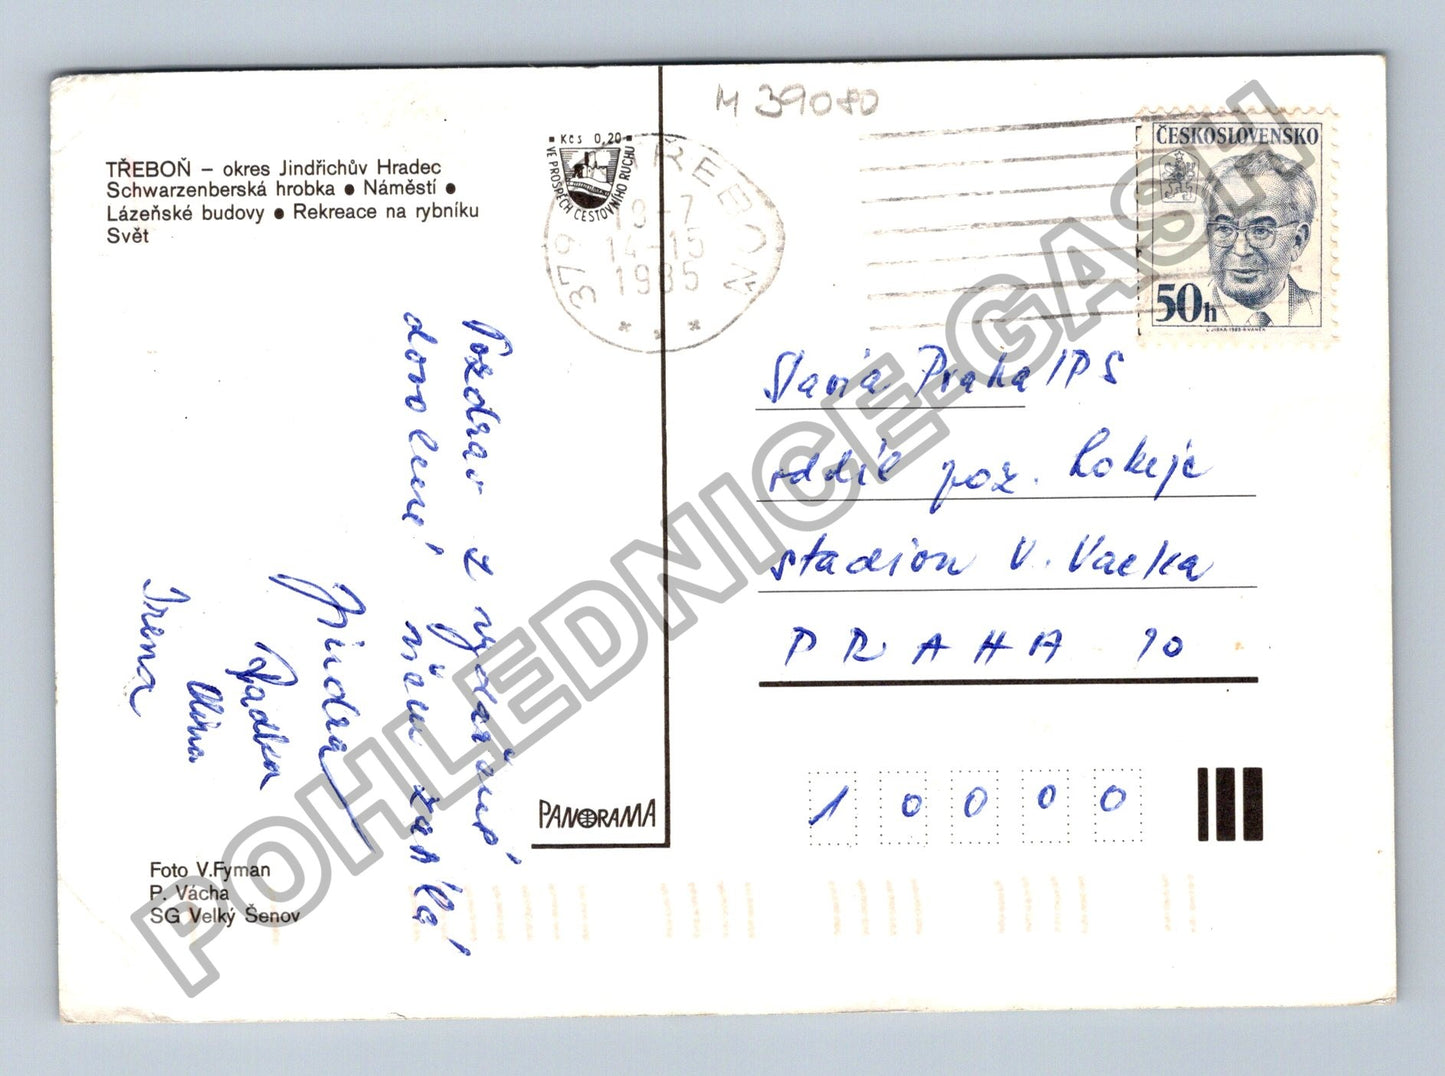 M 39080
TŘEBOŇ – okres Jindřichův Hradec
Schwarzenberská hrobka ● Náměstí ●
Lázeňské budovy ● Rekreace na rybníku
Svět
Kčs 0,20
VE PROSPĚCH CESTOVNÍHO RUCHU
379 TŘEBOŇ
14-15
1985
ČESKOSLOVENSKO
50h
Pozdrav z vydařené
dovolené, nám zasílá
Jindra
Radka
Irena
Slavia Praha IPS
oddíl poz. hokeje
stadion V. Vacka
PRAHA 10
10000
PANORAMA
Foto V.Fyman
P. Vácha
SG Velký Šenov
POHLEDNICE-GASH